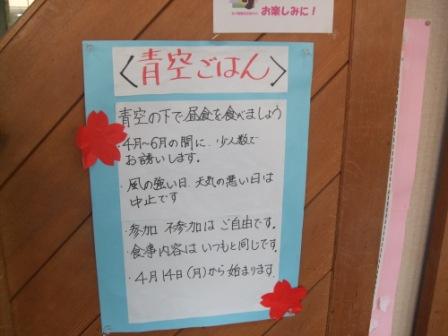 お楽しみに！
〈青空ごはん〉
青空の下で昼食を食べましょう
・4月～6月の間に、少人数で
お誘いします。
・風の強い日、天気の悪い日は
中止です
・参加 不参加は ご自由です。
・食事内容は いつもと同じです。
・4月14日(月)から始まります